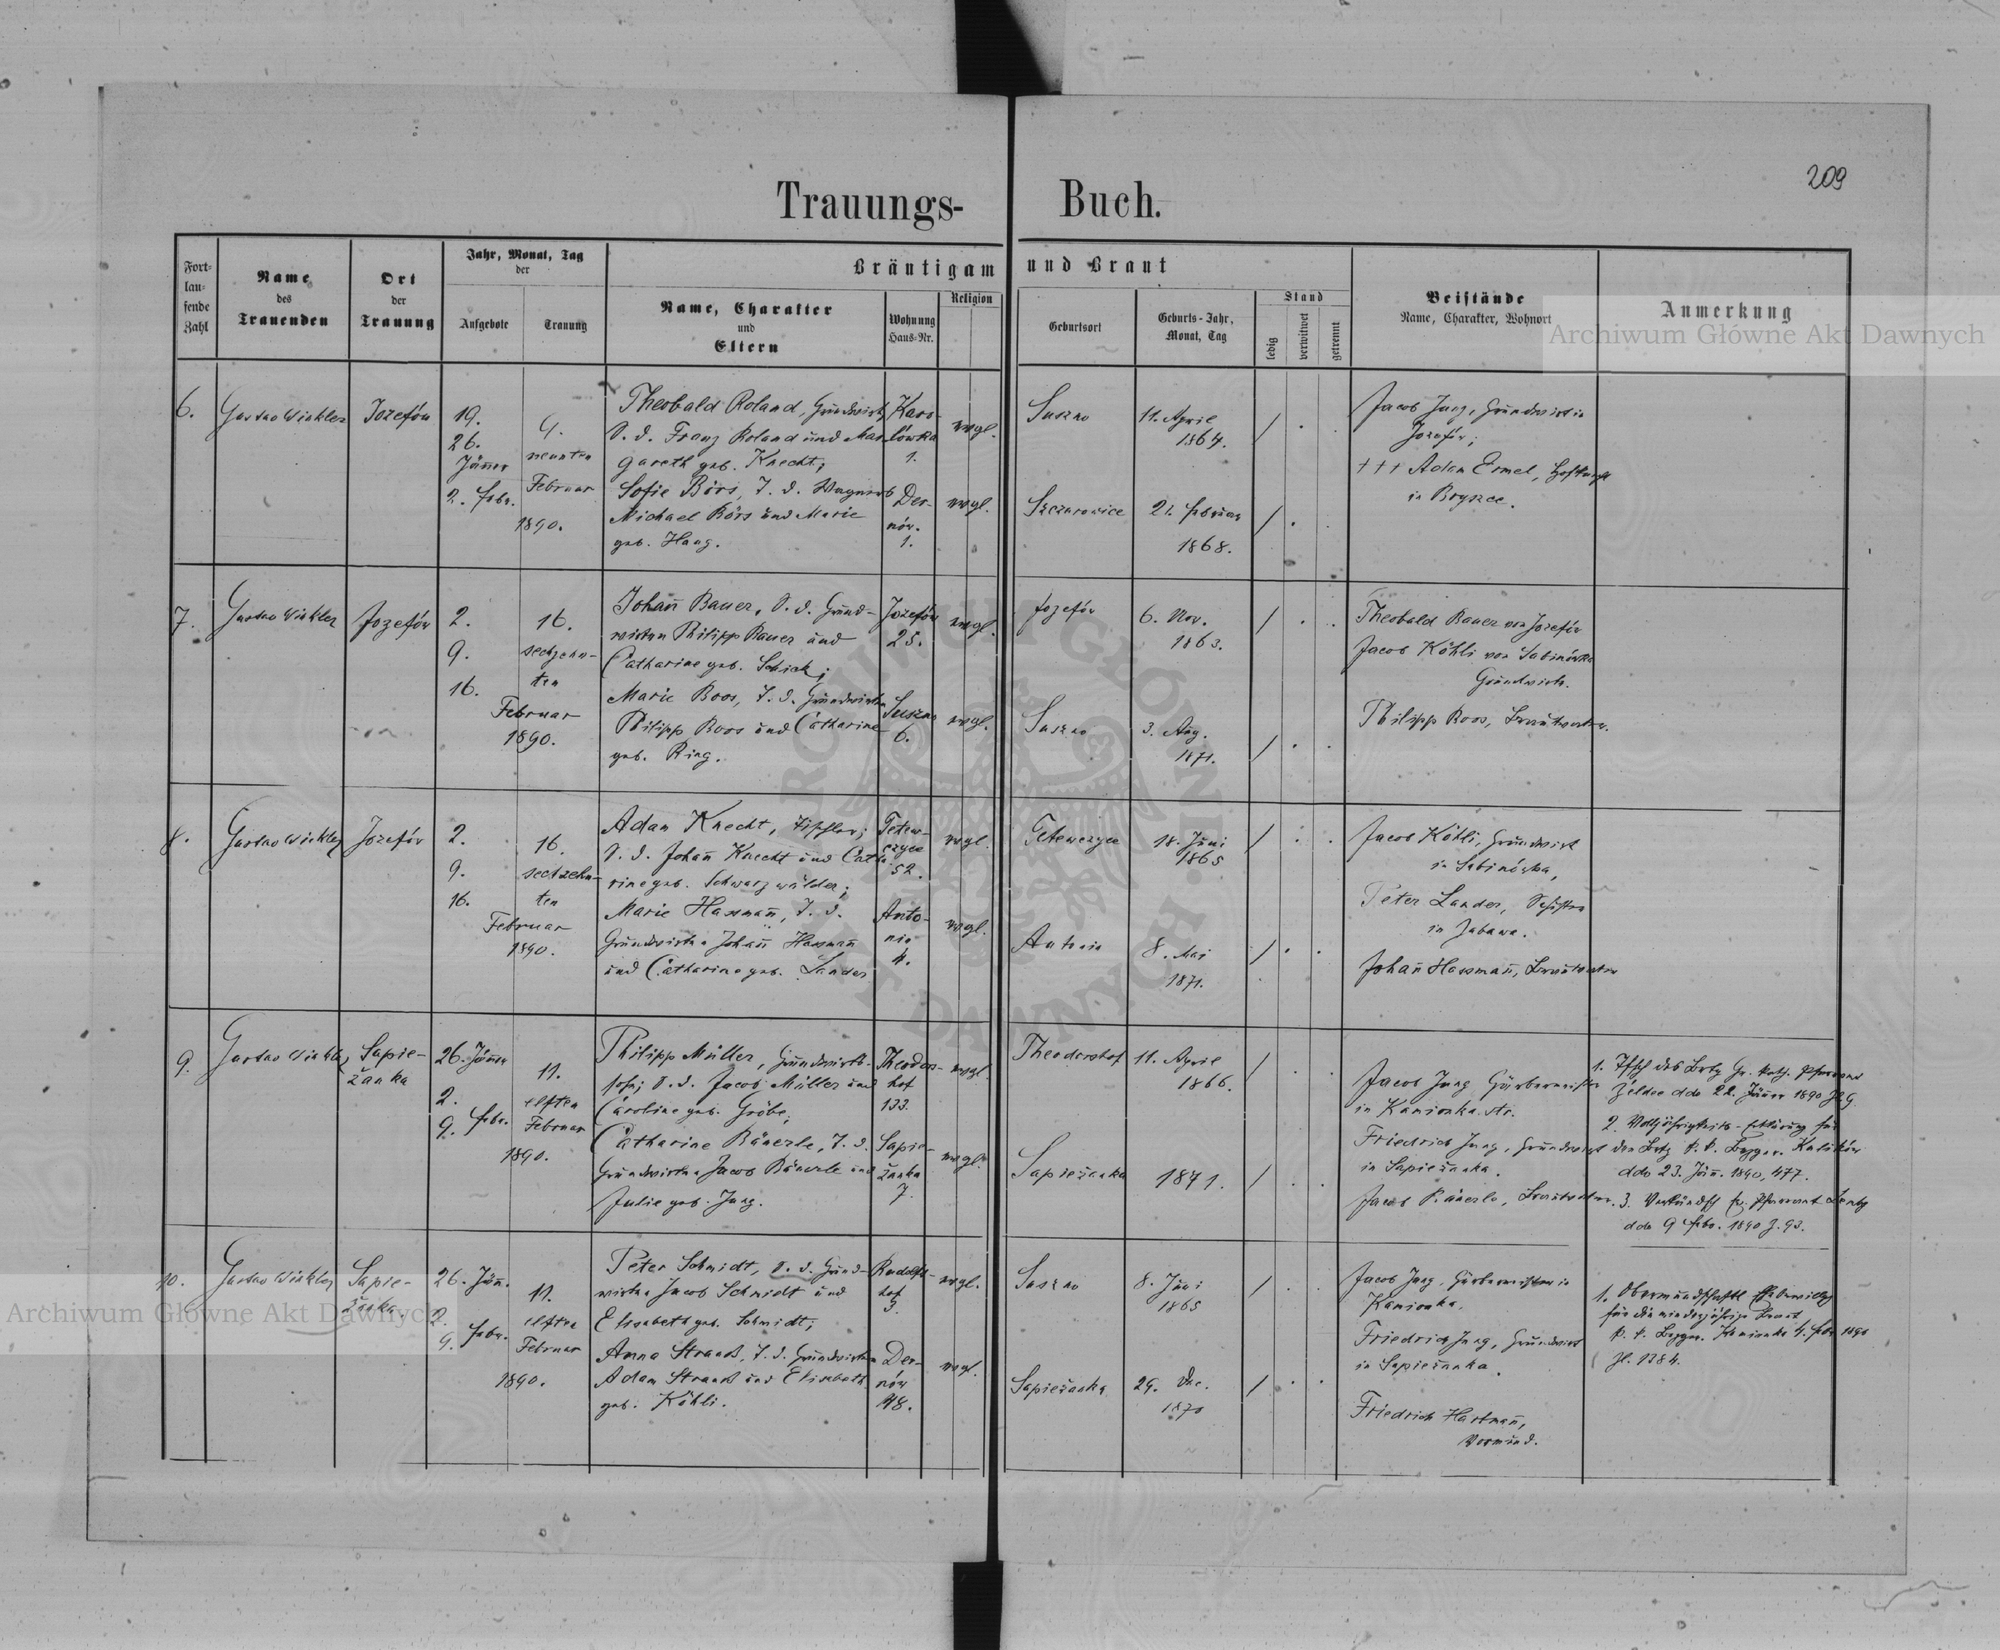 209
Trauungs- Buch.
Fort-
lau-
fende
Zahl
Name
des
Trauenden
Ort
der
Trauung
Jahr, Monat, Tag
der
Aufgebote
Trauung
Bräutigam und Braut
Name, Charakter
und
Eltern
Wohnung
Haus-Nr.
Religion
Geburtsort
Geburts-Jahr,
Monat, Tag
Stand
ledig
verwitwet
getrennt
Beistände
Name, Charakter, Wohnort
Anmerkung
Archiwum Główne Akt Dawnych
6.
Gustav Winkler
Jozefów
19.
26.
Jänner
2. Febr.
9.
neunten
Februar
1890.
Theobald Roland, Grundwirt,
S. d. Franz Roland und Mar-
gareth geb. Knecht;
Sofie Börs, T. d. Wagners
Michael Börs und Marie
geb. Haug.
Karo-
lówka
1.
Der-
nów.
1.
evgl.
evgl.
Suszno
Szczurowice
11. April
1864.
21. Februar
1868.
Jacob Jung, Grundwirt in
Jozefów;
+++ Adam Ermel,
in Boryszce.
7.
Gustav Winkler
Jozefów
2.
9.
16.
16.
sechzehn-
ten
Februar
1890.
Johañ Bauer, S. d. Grund-
wirten Philipp Bauer und
Catharine geb. Schick;
Marie Boos, T. d. Grundwirten
Philipp Boos und Catharine
geb. Ring.
Jozefów
25.
Suszno
6.
evgl.
evgl.
Jozefów
Suszno
6. Nov.
1863.
3. Aug.
1871.
Theobald Bauer von Jozefów
Jacob Köhli von Sabinówka
Grundwirte.
Philipp Boos, Brautvater.
8.
Gustav Winkler
Jozefów
2.
9.
16.
16.
sechzehn-
ten
Februar
1890.
Adam Knecht, Tischler;
S. d. Johañ Knecht und Catha-
rine geb. Schwarzwälder;
Marie Hassmañ, T. d.
Grundwirten Johañ Hassmañ
und Catharine geb. Lander
Tetew-
czyce
52.
Anto-
nin
4.
evgl.
evgl.
Tetewczyce
Antonin
18. Juni
1865
8. Mai
1871.
Jacob Köhli, Grundwirt
in Sabinówka,
Peter Lander, Schuster
in Zabawa.
Johañ Hassmañ, Brautvater
9.
Gustav Winkler
Sapie-
żanka
26. Jänner
2.
9. Febr.
11.
elften
Februar
1890.
Philipp Müller, Grundwirts-
sohn; S. d. Jacob Müller und
Caroline geb. Gröbe;
Catharine Bäuerle, T. d.
Grundwirten Jacob Bäuerle und
Julie geb. Jung.
Theodors-
hof
133.
Sapie-
żanka
7.
evgl.
evgl.
Theodorshof
Sapieżanka
11. April
1866.
1871.
Jacob Jung Gärbermeister
in Kamionka str.
Friedrich Jung, Grundwirt
in Sapieżanka.
Jacob Bäuerle, Brautvater.
1. des Gr. kath. Pfarramts
Żeldec ddo 22. Jänner 1890
2. Volljährigkeits-Erklärung für
ddo 23. Jän. 1890, 477.
3. Pfarramt
ddo 9 Febr. 1890 Z. 93.
10.
Gustav Winkler
Sapie-
żanka.
26. Jän.
2.
9. Febr.
11.
elften
Februar
1890.
Peter Schmidt, S. d. Grund-
wirten Jacob Schmidt und
Elisabeth geb. Schmidt;
Anna Strauß, T. d. Grundwirten
Adam Strauß und Elisabeth
geb. Köhli.
Rudolfs-
hof
3.
Der-
nów
48.
evgl.
evgl.
Suszno
Sapieżanka
8. Juni
1865
29. Dec.
1870
Jacob Jung, Gärbermeister in
Kamionka.
Friedrich Jung, Grundwirt
in Sapieżanka.
Friedrich Hartmañ,
Vormund.
1. Obermundschaftl.
für die minderjährige Braut
Kamionka 4. Febr. 1890
Zl. 1384.
Archiwum Główne Akt Dawnych